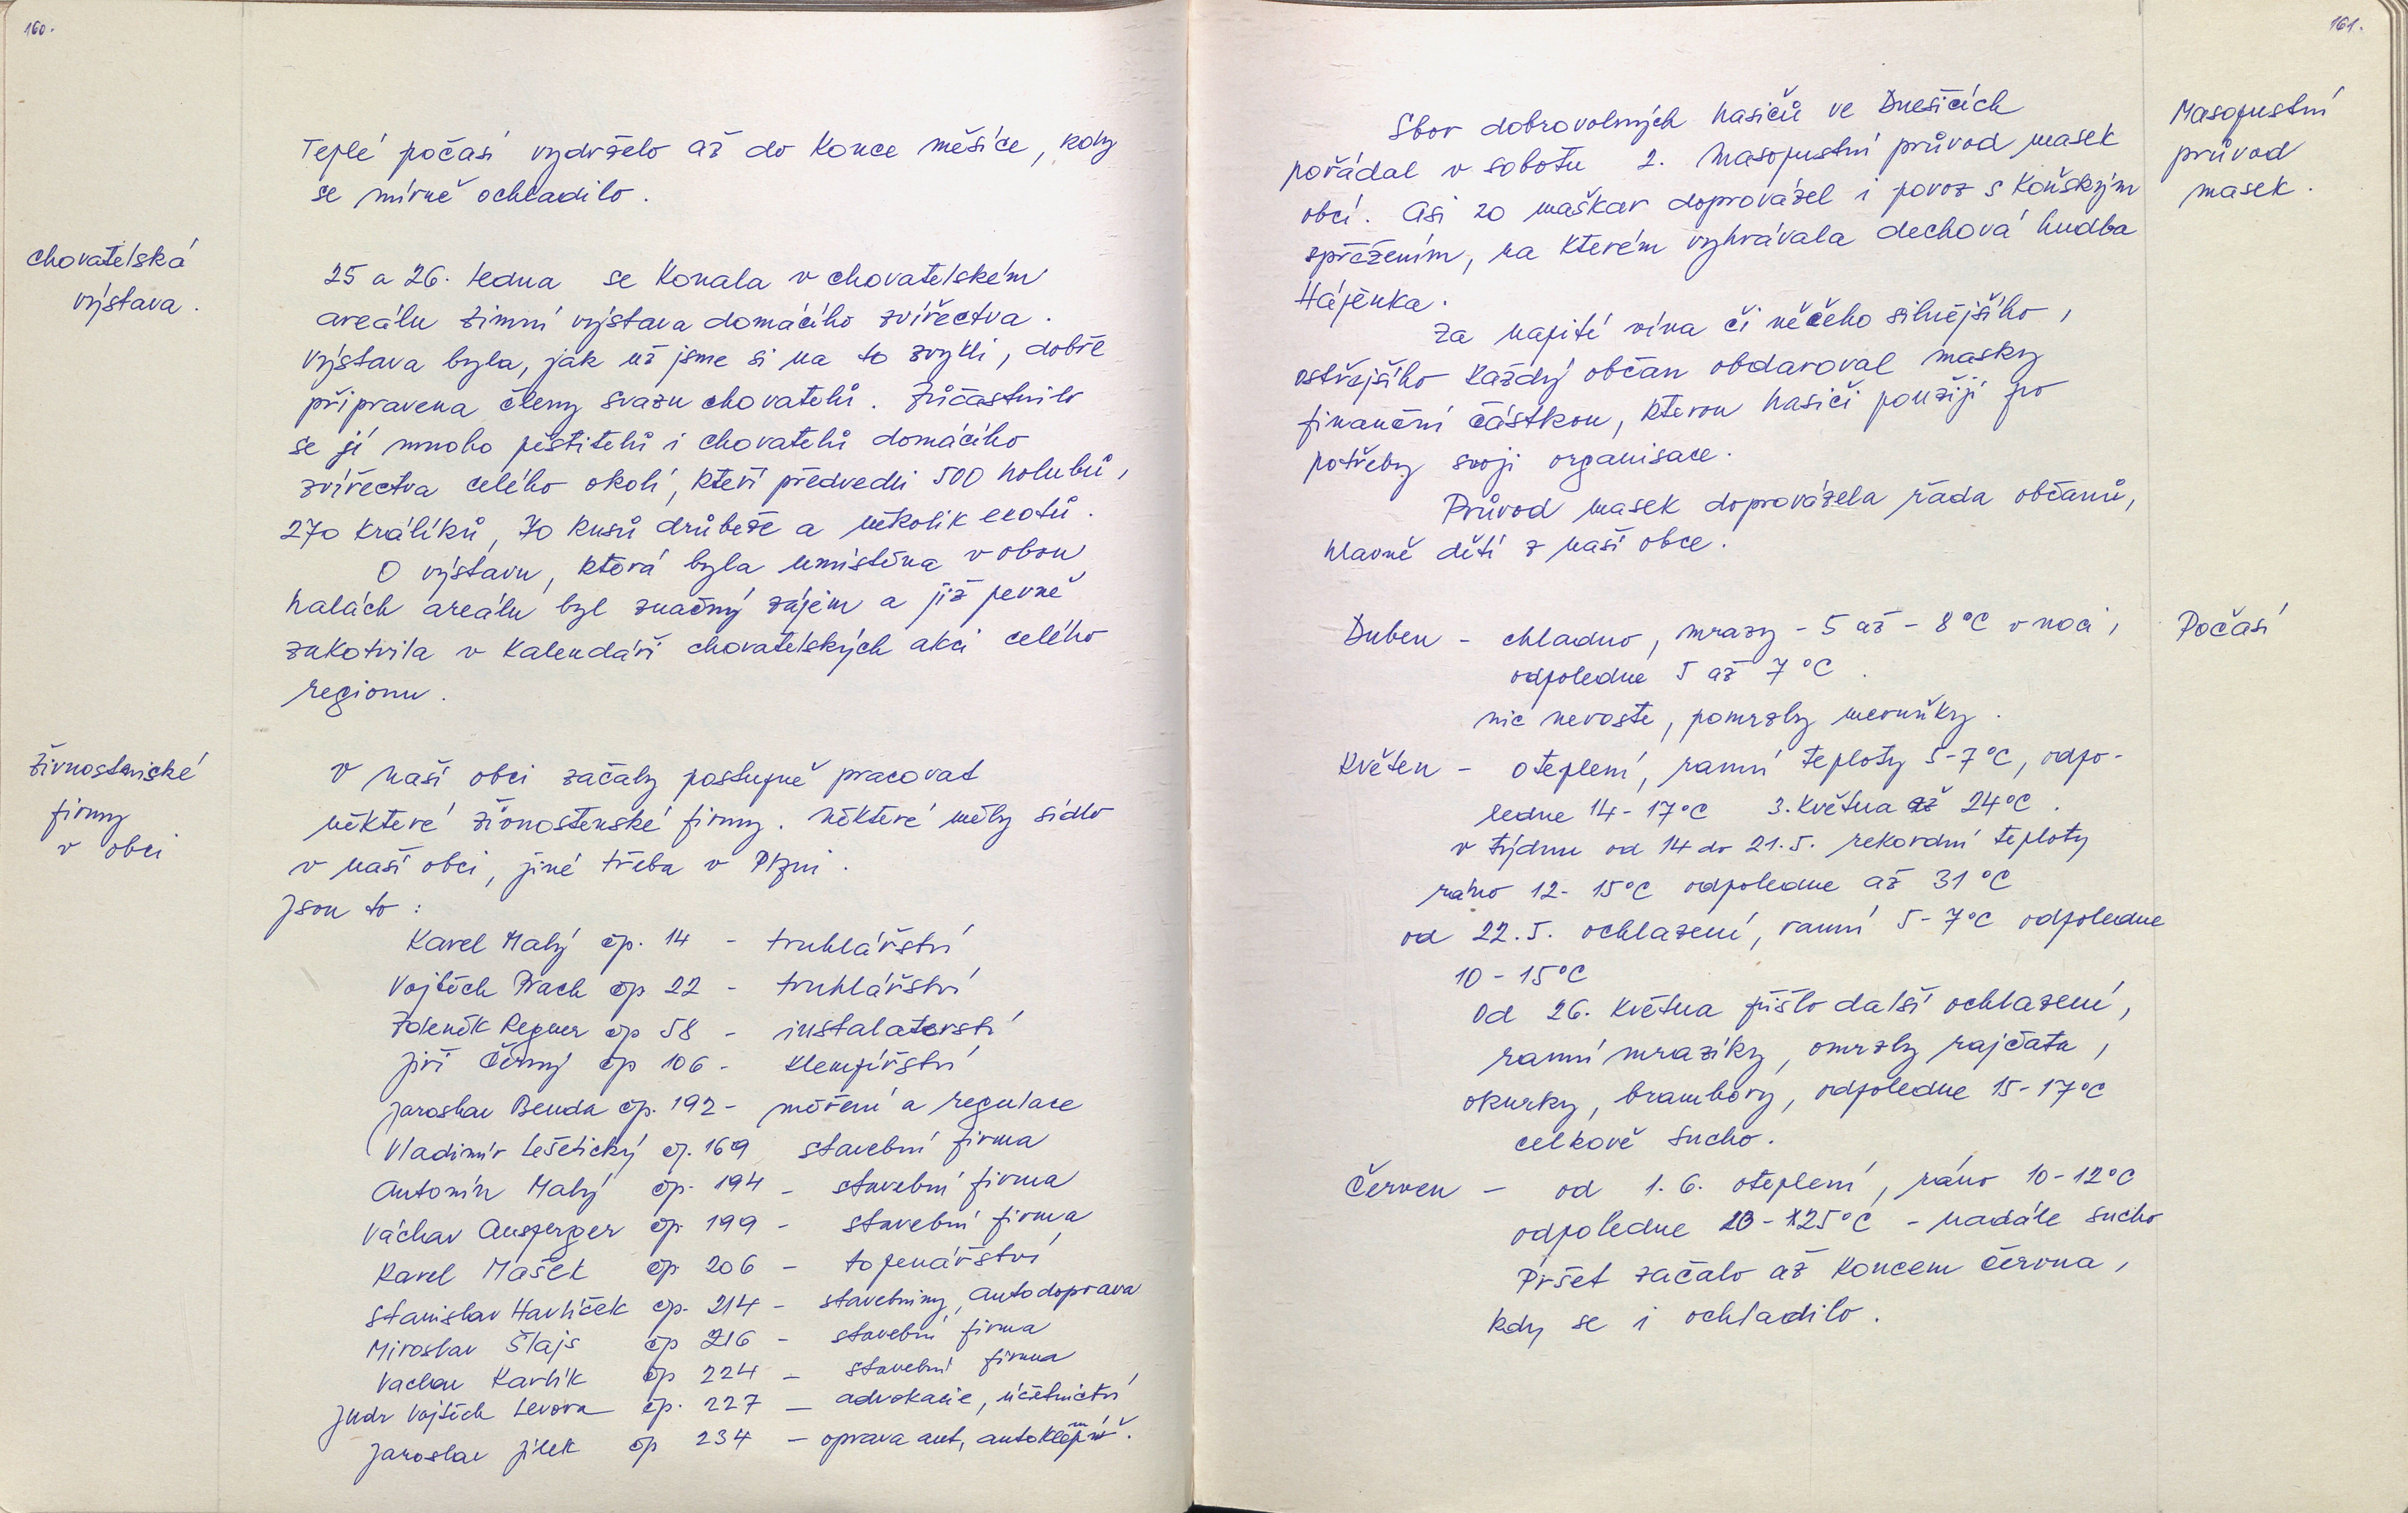 160.
Teplé počasí vydrželo až do konce měsíce, kdy
se mírně ochladilo.
chovatelská
výstava.
25 a 26. ledna se konala v chovatelském
areálu zimní výstava domácího zvířectva.
Výstava byla, jak už jsme si na to zvykli, dobře
připravena členy svazu chovatelů. Zúčastnilo
se jí mnoho pěstitelů i chovatelů domácího
zvířectva celého okolí, kteří předvedli 500 holubů,
270 králíků, 70 kusů drůbeže a několik exotů.
O výstavu, která byla umístěna v obou
halách areálu byl značný zájem a již pevně
zakotvila v kalendáři chovatelských akcí celého
regionu.
živnostnické
firmy
v obci
V naší obci začaly postupně pracovat
některé živnostenské firmy. Některé měly sídlo
v naší obci, jiné třeba v Plzni.
Jsou to:
Karel Malý čp. 14 - truhlářství
Vojtěch Prach čp 22 - truhlářství
Zdeněk Regner čp 58 - instalaterství
Jiří Černý čp 106 - klempířství
Jaroslav Benda čp. 192 - měření a regulace
Vladimír Lešetický čp. 169 stavební firma
Antonín Malý čp. 194 - stavební firma
Václav Ausperger čp 199 - stavební firma
Karel Mašek čp 206 - topenářství
Stanislav Havlíček čp. 214 - stavebniny, Autodoprava
Miroslav Šlajs čp 216 - stavební firma
Vaclav Karlík čp 224 - stavební firma
Judr Vojtěch Levora čp. 227 - advokacie, účetnictví
Jaroslav Jílek čp 234 - oprava aut,
161.
Sbor dobrovolných hasičů ve Dnešicích
pořádal v sobotu 2. Masopustní průvod masek
obcí. Asi 20 maškar doprovázel i povoz s koňským
spřežením, na kterém vyhrávala dechová hudba
Hájenka.
Masopustní
průvod
masek.
Za napití vína či něčeho silnějšího,
ostřejšího každý občan obdaroval masky
finanční částkou, kterou hasiči použijí pro
potřeby svoji organisace.
Průvod masek doprovázela řada občanů,
hlavně dětí z naší obce.
Počasí
Duben - chladno, mrazy - 5 až - 8°C v noci,
odpoledne 5 až 7°C.
nic neroste, pomrzly meruňky.
Květen - oteplení, ranní teploty 5-7°C, odpo-
ledne 14-17°C 3. května až 24°C.
v týdnu od 14 do 21.5. rekordní teploty
ráno 12-15°C odpoledne až 31°C
od 22.5. ochlazení, ranní 5-7°C odpoledne
10-15°C
Od 26. května přišlo další ochlazení,
ranní mrazíky, omrzly rajčata,
okurky, brambory, odpoledne 15-17°C
celkově sucho.
Červen - od 1.6. oteplení, ráno 10-12°C
odpoledne - 25°C - nadále sucho
Pršet začalo až koncem června,
kdy se i ochladilo.